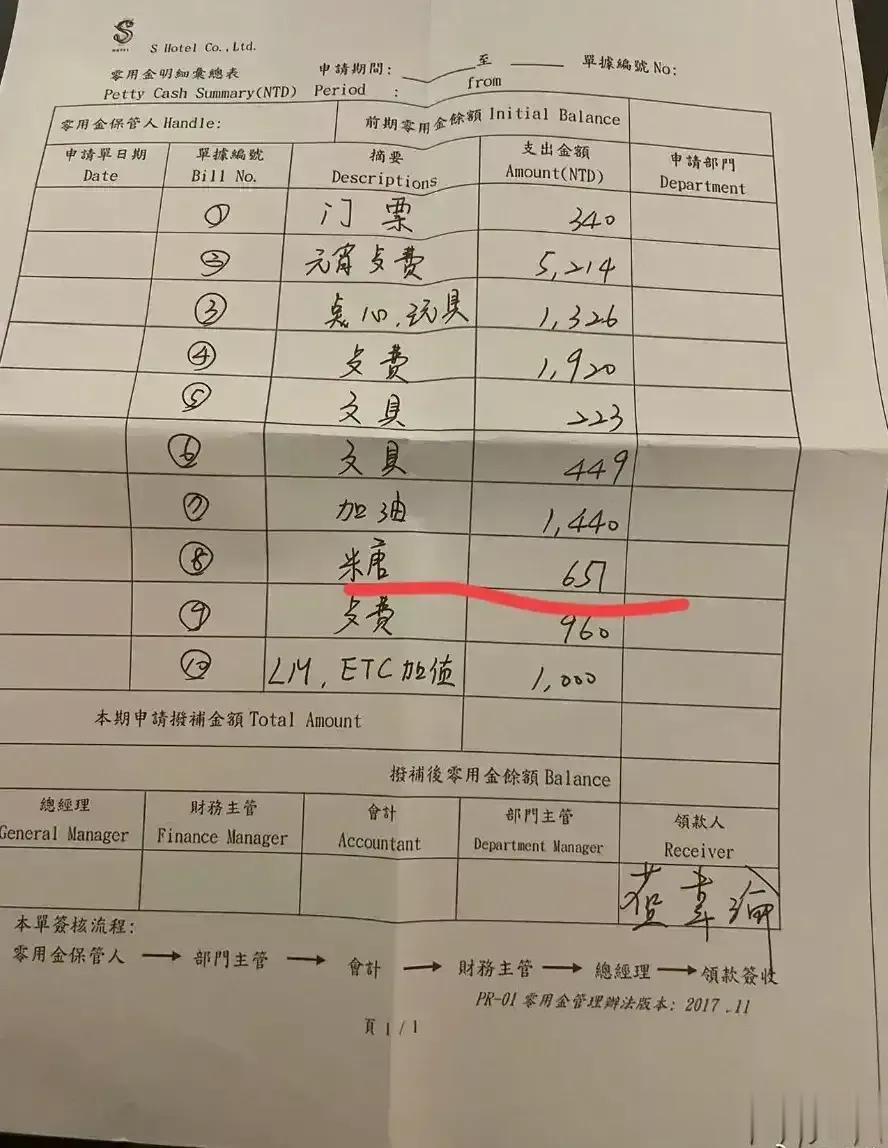 S
HOTEL
S Hotel Co.,Ltd.
零用金明細彙總表 申請期間: 至 單據編號 No:
Petty Cash Summary(NTD) Period : from
零用金保管人 Handle: 前期零用金餘額 Initial Balance
申請單日期 單據編號 摘要 支出金額 申請部門
Date Bill No. Descriptions Amount(NTD) Department
① 门票 340
② 元宵歺費 5,214
③ 奌心, 玩具 1,326
④ 歺費 1,920
⑤ 文具 223
⑥ 文具 449
⑦ 加油 1,440
⑧ 糖 657
⑨ 歺費 960
⑩ LM, ETC加值 1,000
本期申請撥補金額 Total Amount
撥補後零用金餘額 Balance
總經理 財務主管 會計 部門主管 領款人
General Manager Finance Manager Accountant Department Manager Receiver
本單簽核流程:
零用金保管人 → 部門主管 → 會計 → 財務主管 → 總經理 → 領款簽收
PR-01 零用金管理辦法版本: 2017.11
頁 1/1